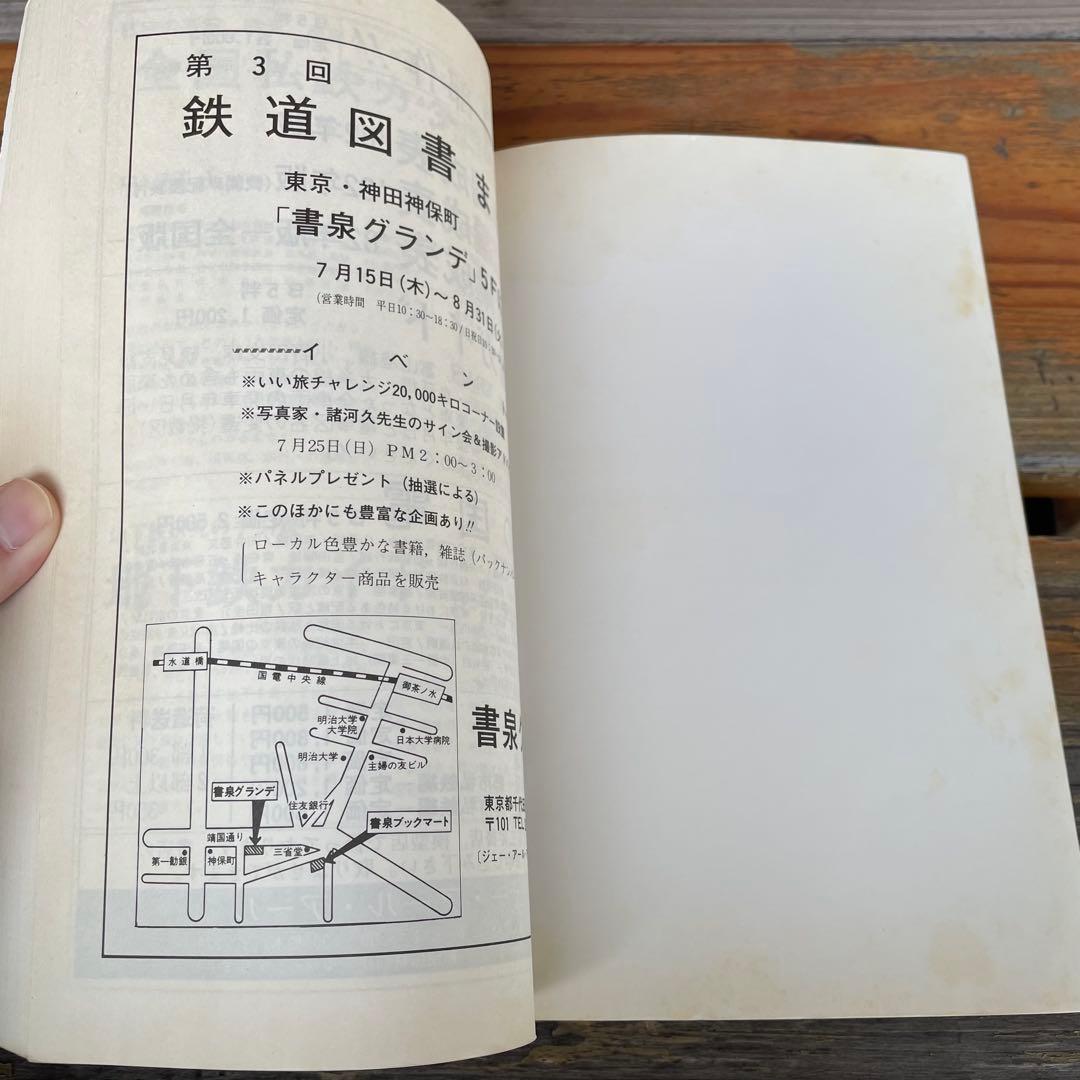 第3回
鉄道図書ま
東京・神田神保町
「書泉グランデ」5F
7月15日(木)〜8月31日(
(営業時間 平日10:30〜18:30/日祝日
イベン
※いい旅チャレンジ20,000キロコーナー設置
※写真家・諸河久先生のサイン会&撮影アド
7月25日(日) PM2:00〜3:00
※パネルプレゼント (抽選による)
※このほかにも豊富な企画あり!!
ローカル色豊かな書籍, 雑誌 (バックナン
キャラクター商品を販売
水道橋
国電中央線
御茶ノ水
明治大学
大学院
日本大学病院
明治大学
主婦の友ビル
書泉グランデ
住友銀行
書泉ブックマート
靖国通り
第一勧銀
神保町
三省堂
書泉
東京都千代
〒101 TEL
(ジェー・アール・